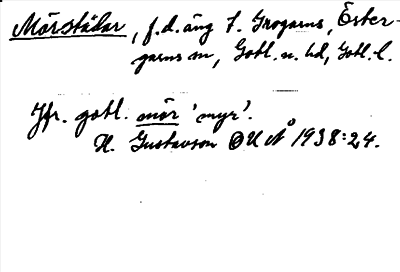 Mörstälar, f.d. äng t. Grogarns, Öster-
garns sn, Gotl. n. hd, Gotl. l.
Jfr. gotl. mör 'myr'.
H. Gustavson OUÅ 1938:24.